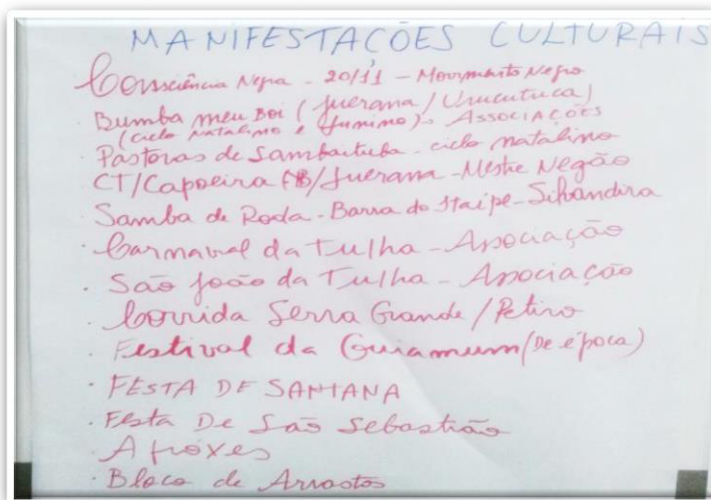 MANIFESTAÇÕES CULTURAIS
Consciência Negra - 20/11 - Movimento Negro
Bumba meu Boi (Juerana / Urucutuca)
(ciclo natalino e junino) - ASSOCIAÇÕES
Pastoras de Sambaituba - ciclo natalino
CT/Capoeira /Juerana - Mestre Negão
Samba de Roda - Barra do Itaipe - Silvandira
· Carnaval da Tulha - Associação
· São João da Tulha - Associação
· Corrida Serra Grande / Petiro
· Festival da Guiamum (De época)
· FESTA DE SANTANA
· Festa De São Sebastião
· Afoxés
· Bloco de Arrastos